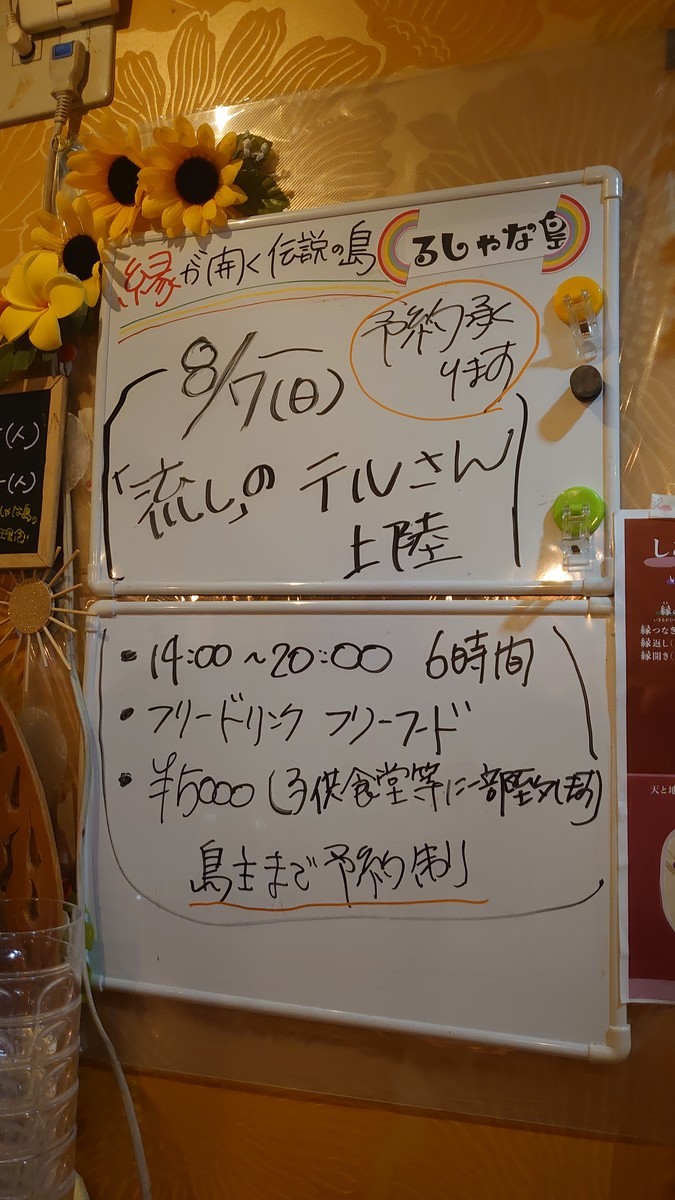 縁が開く伝説の島 るしゃな島
予約承
ります
8/7(日)
「流し」の テルさん
上陸
• 14:00～20:00 6時間
• フリードリンク フリーフード
• ¥5000 (子供食堂等に一部寄付します)
島主まで予約制
(人)
(人)
縁つなぎ
縁返し
縁開き
天と地